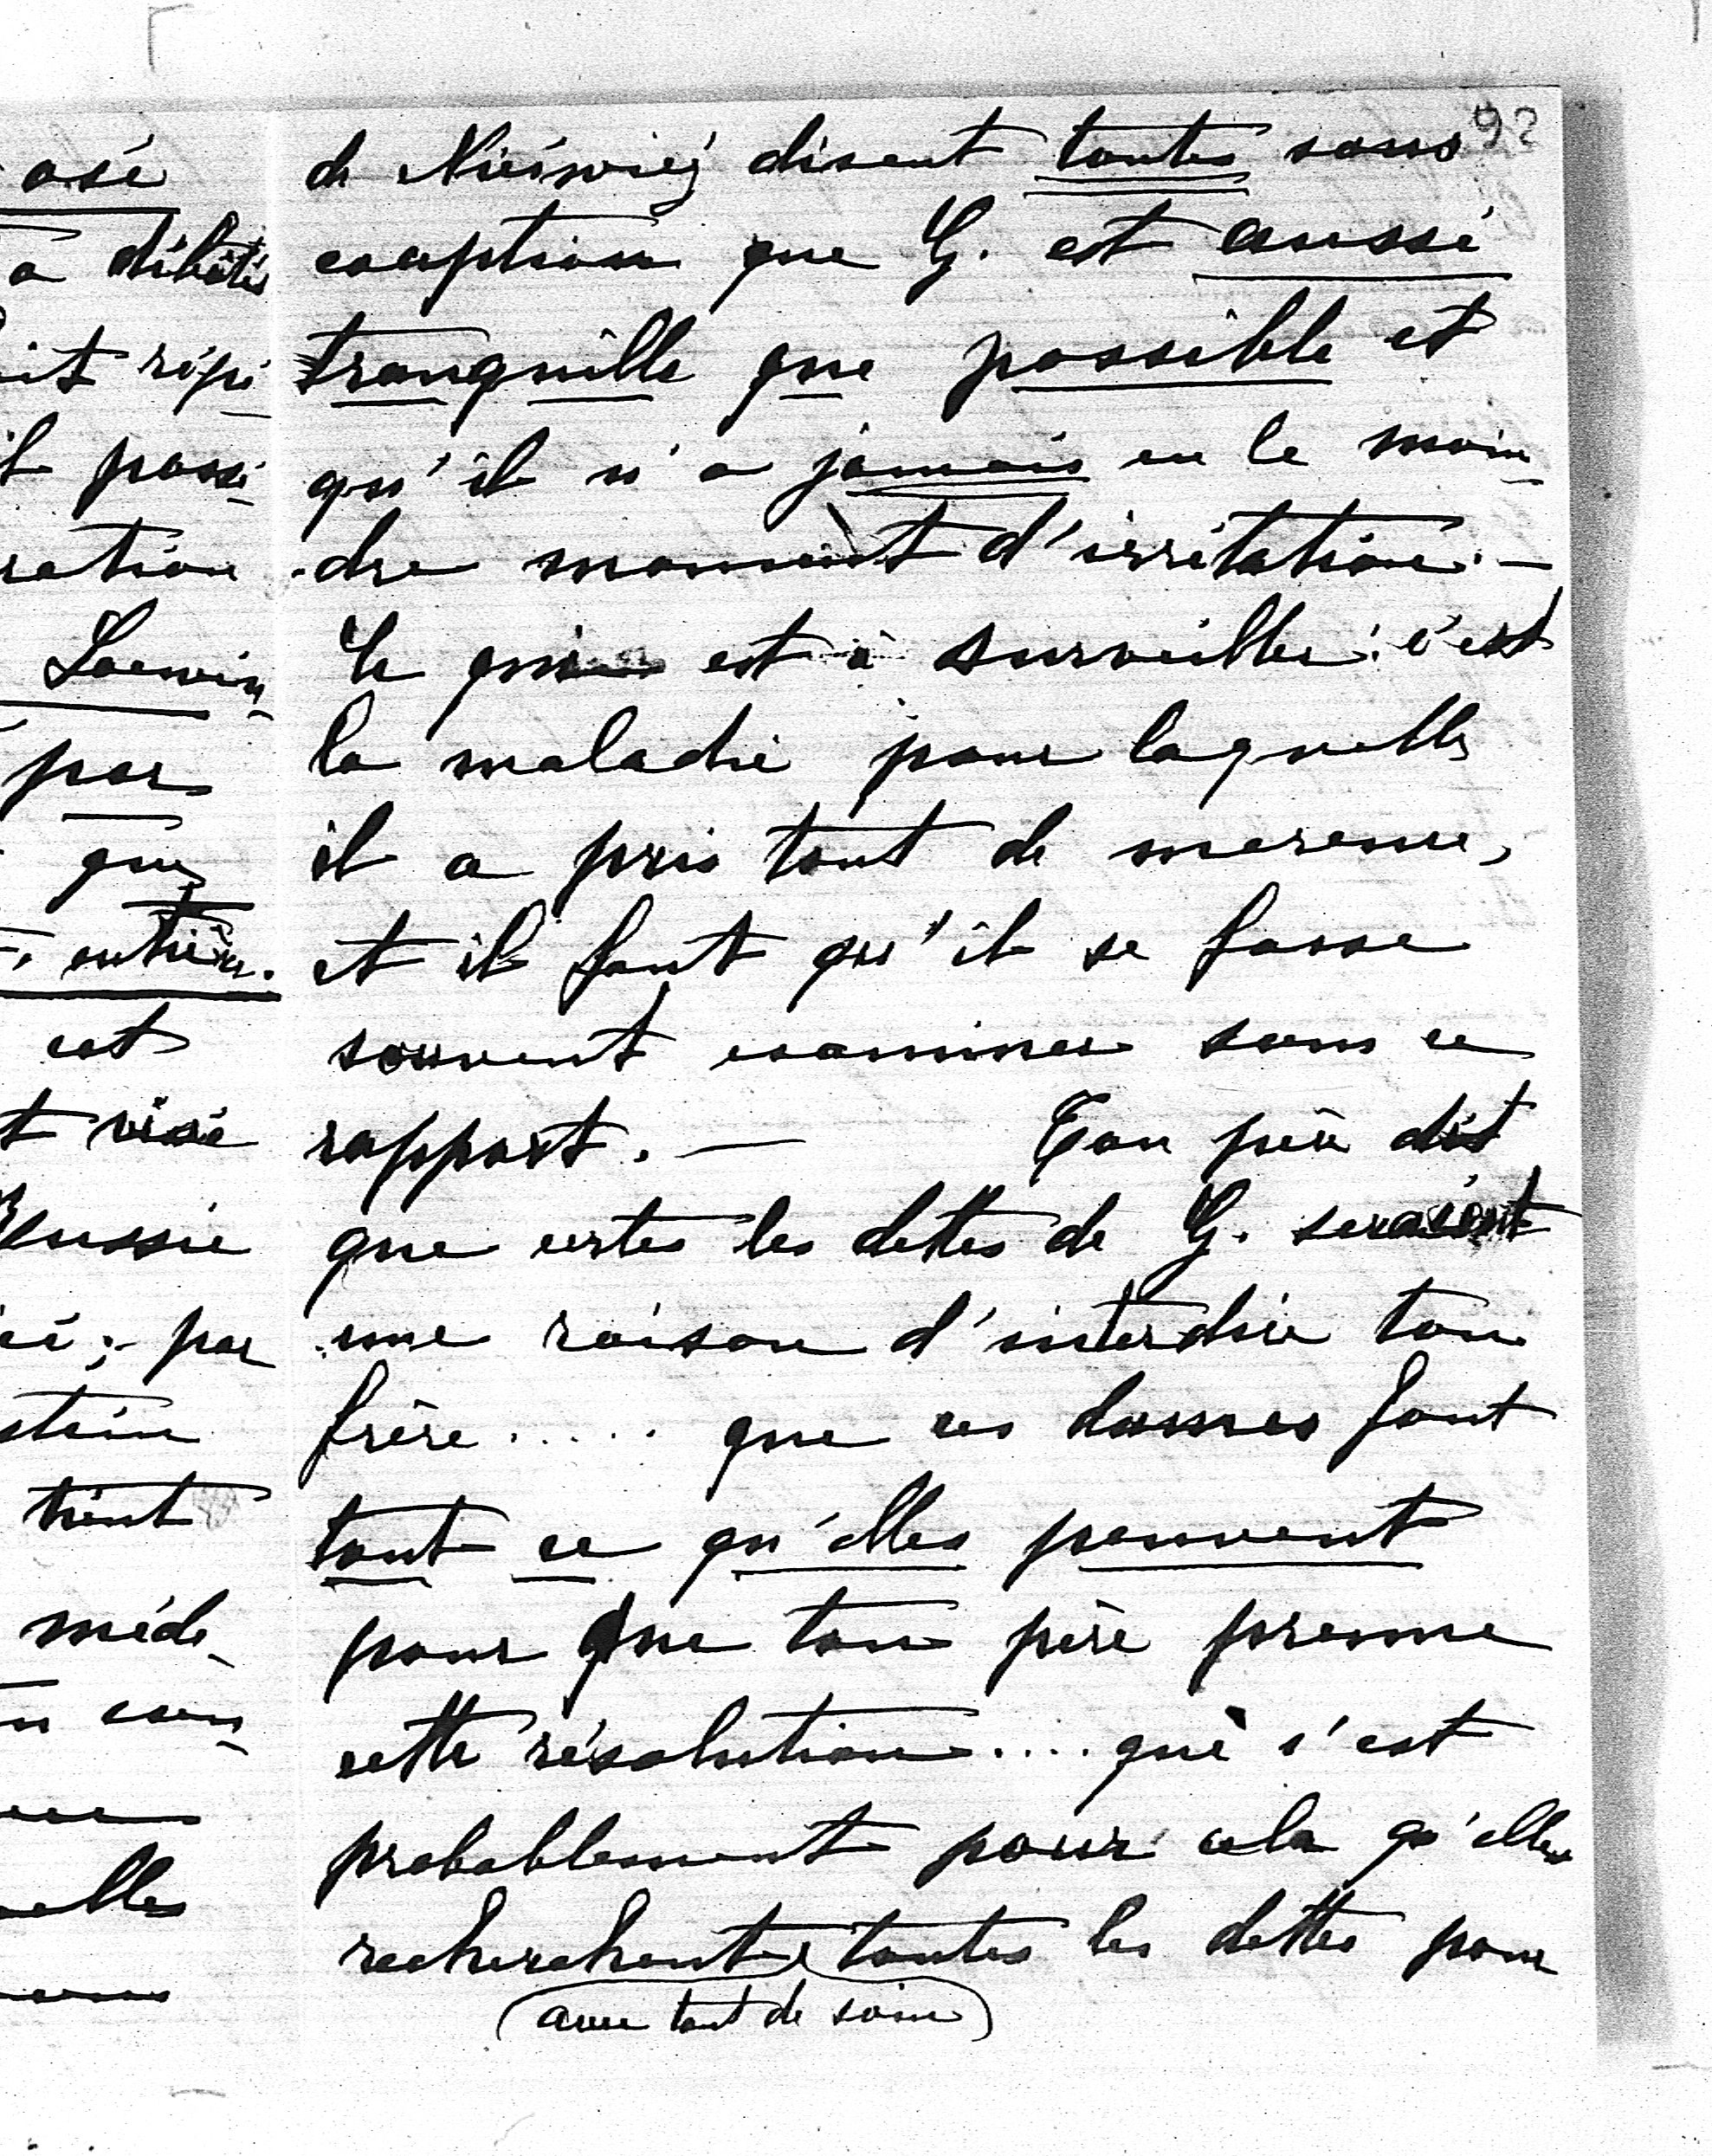 92
de Nieśwież disent toutes sans
exception que G. est aussi
tranquille que possible et
qu'il n'a jamais eu le moin-
dre moment d'irritation. —
Ce qui est à surveiller: c'est
la maladie pour laquelle
il a pris tant de mercure,
et il faut qu'il se fasse
souvent examiner sous ce
rapport. — Ton père dit
que certes les dettes de G. seraient
une raison d'interdire ton
frère..... que ces dames font
tout ce qu'elles peuvent
pour que ton père prenne
cette résolution.... que c'est
probablement pour cela qu'elles
recherchent toutes les dettes pour
(avec tant de soin)
osé
a débité
répé-
possi-
ration
Loewin-
par
que
entière.
est
visé
Russie
par
stein
tient
méde-
con-